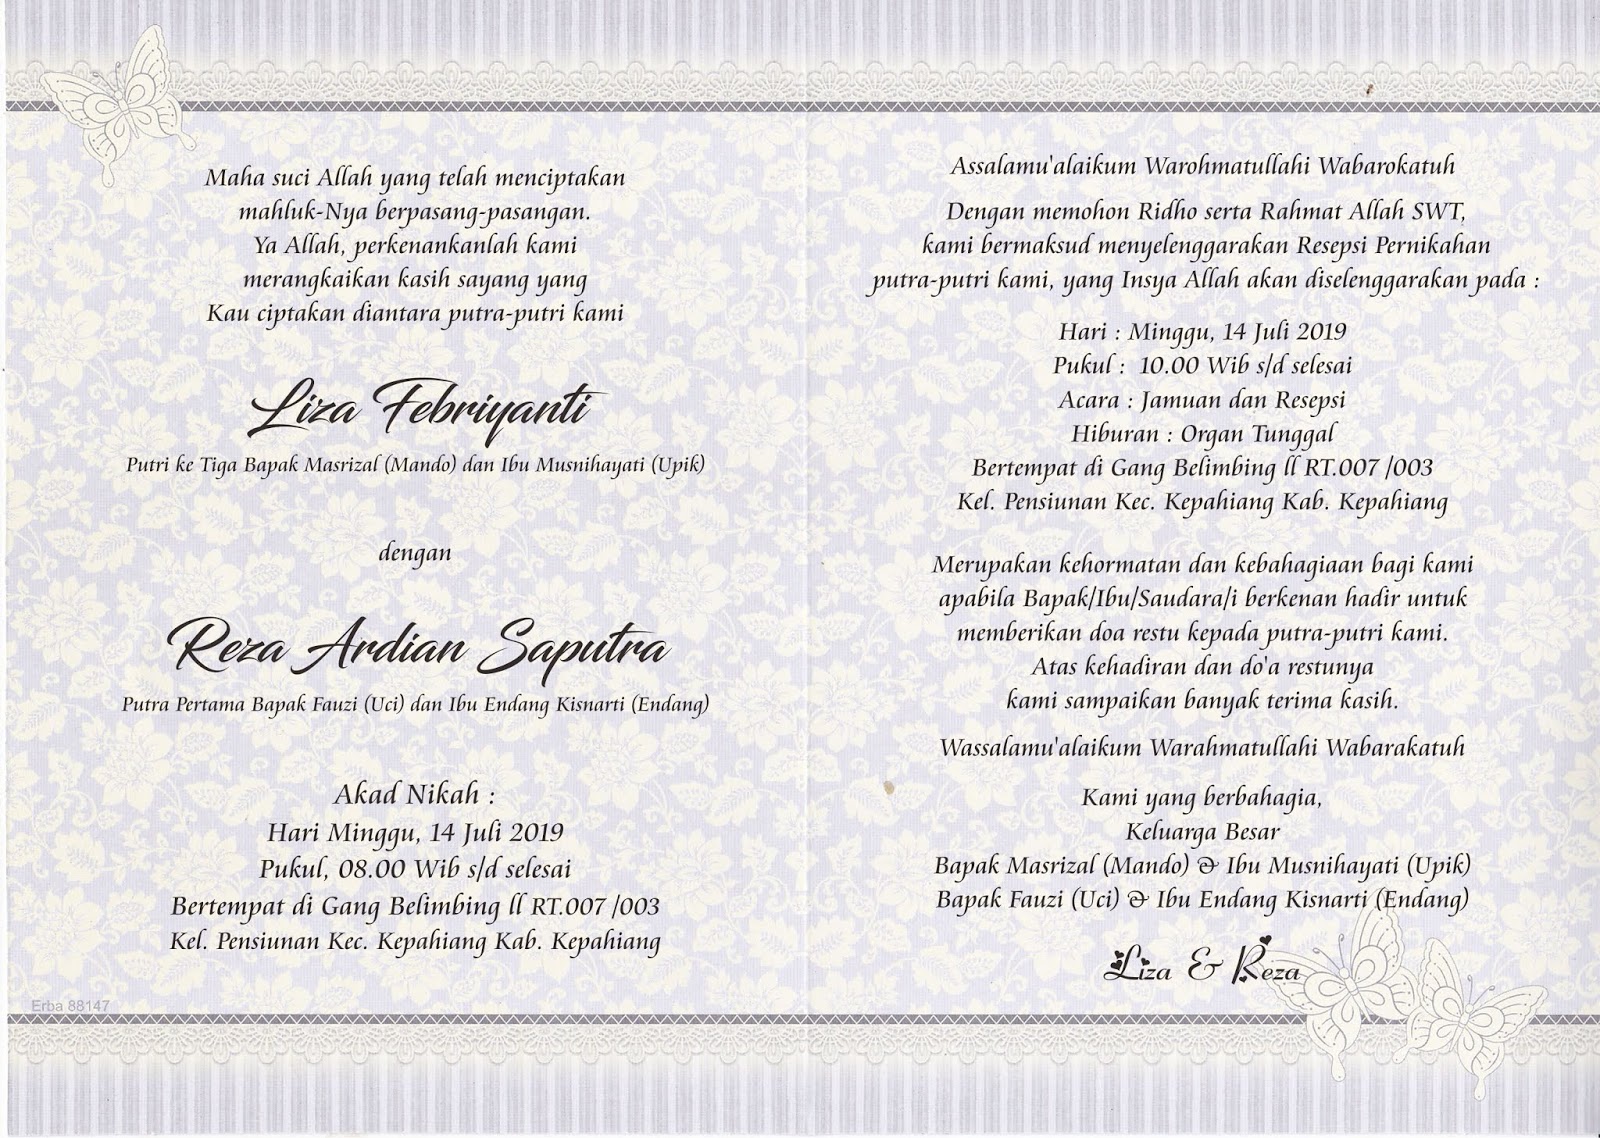 Maha suci Allah yang telah menciptakan
mahluk-Nya berpasang-pasangan.
Ya Allah, perkenankanlah kami
merangkaikan kasih sayang yang
Kau ciptakan diantara putra-putri kami
Liza Febriyanti
Putri ke Tiga Bapak Masrizal (Mando) dan Ibu Musnihayati (Upik)
dengan
Reza Ardian Saputra
Putra Pertama Bapak Fauzi (Uci) dan Ibu Endang Kisnarti (Endang)
Akad Nikah :
Hari Minggu, 14 Juli 2019
Pukul, 08.00 Wib s/d selesai
Bertempat di Gang Belimbing ll RT.007 /003
Kel. Pensiunan Kec. Kepahiang Kab. Kepahiang
Erba 88147
Assalamu'alaikum Warohmatullahi Wabarokatuh
Dengan memohon Ridho serta Rahmat Allah SWT,
kami bermaksud menyelenggarakan Resepsi Pernikahan
putra-putri kami, yang Insya Allah akan diselenggarakan pada :
Hari : Minggu, 14 Juli 2019
Pukul : 10.00 Wib s/d selesai
Acara : Jamuan dan Resepsi
Hiburan : Organ Tunggal
Bertempat di Gang Belimbing ll RT.007 /003
Kel. Pensiunan Kec. Kepahiang Kab. Kepahiang
Merupakan kehormatan dan kebahagiaan bagi kami
apabila Bapak/Ibu/Saudara/i berkenan hadir untuk
memberikan doa restu kepada putra-putri kami.
Atas kehadiran dan do'a restunya
kami sampaikan banyak terima kasih.
Wassalamu'alaikum Warahmatullahi Wabarakatuh
Kami yang berbahagia,
Keluarga Besar
Bapak Masrizal (Mando) & Ibu Musnihayati (Upik)
Bapak Fauzi (Uci) & Ibu Endang Kisnarti (Endang)
Liza & Reza